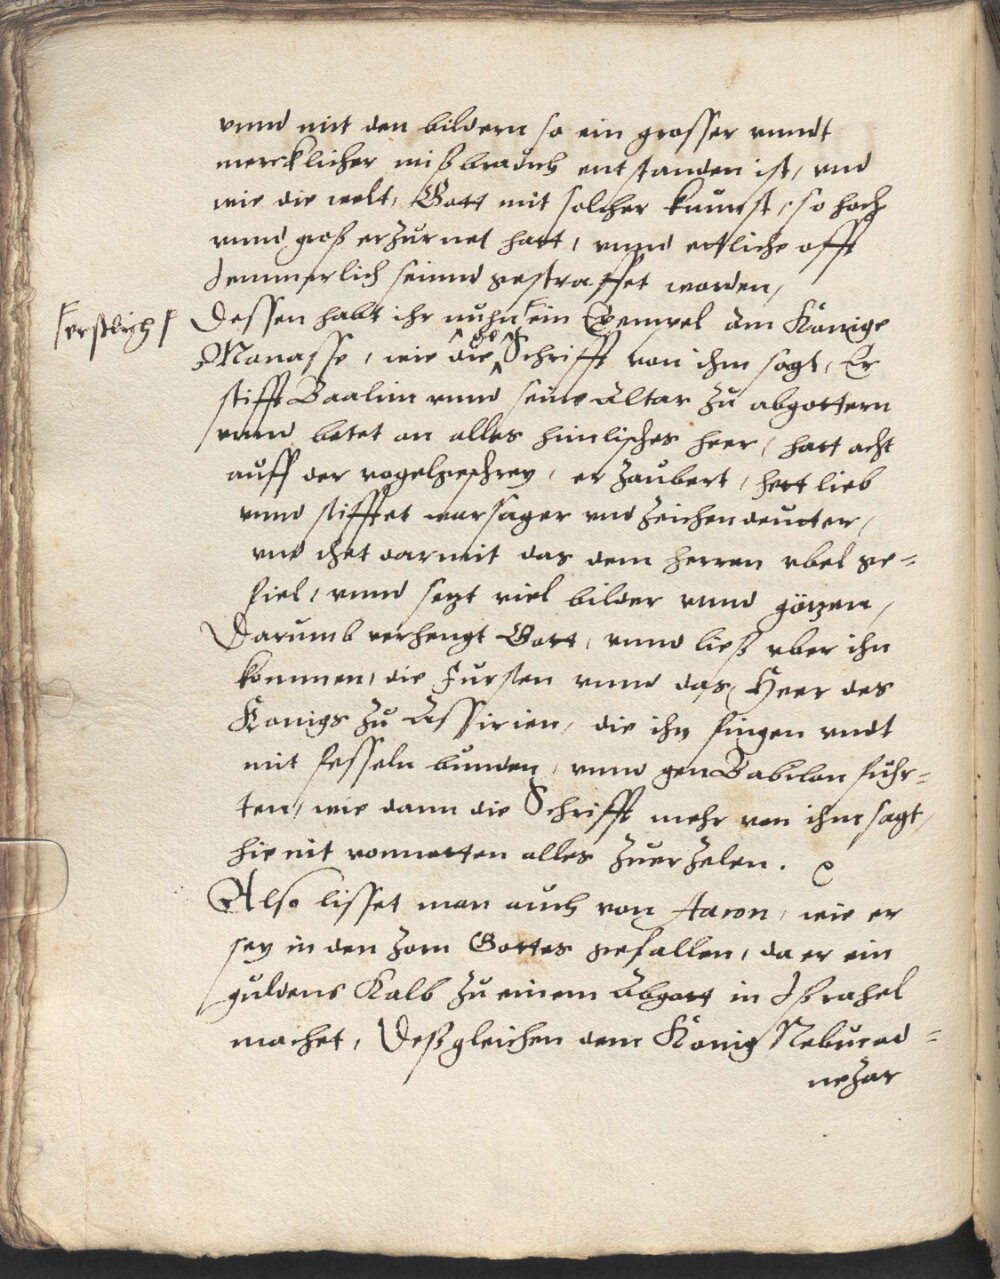 vnnd mit den bildern so ein grosser vnndt
mercklicher mißbrauch entstanden ist, vnd
wie die welt, Gott mit solcher kunnst, so hoch
vnnd groß erzurnet hatt, vnnd ettliche offt
Jemmerlich seinnd gestraffet worden,
erstlich
Dessen habt ihr nuhn ein Exempel am Könige
Manasse, wie die Schrifft von ihm sagt, Er
stifft Baalim vnnd seine Altar zu abgottern
vnnd betet an alles himlisches heer, hatt acht
auff der vogelgeschrey, er zaubert, hett lieb
vnnd stifftet warsager vnd zeichendeutter,
vnd thet darmit das dem herren vbel ge-
fiel, vnnd setzt viel bilder vnnd götzen,
Darumb verhengt Gott, vnnd ließ vber ihn
kommen, die Fursten vnnd das Heer des
Konigs zu Assirien, die ihn fingen vndt
mit fesseln bunden, vnnd gen Babilon fuhr-
ten, wie dann die Schrifft mehr von ihm sagt,
hie nit vonnotten alles zuerzelen.
Also lisset man auch von Aaron, wie er
sey in den zorn Gottes gefallen, da er ein
guldens Kalb zu einem Abgott in Ißrahel
machet, Deßgleichen dem König Nebucad-
nezar